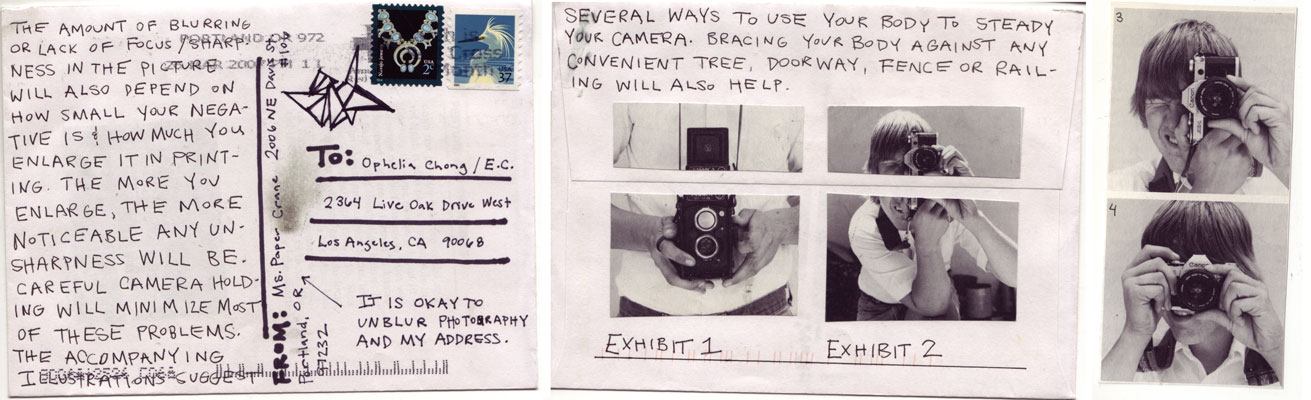 THE AMOUNT OF BLURRING
OR LACK OF FOCUS/SHARP-
NESS IN THE PICTURE
WILL ALSO DEPEND ON
HOW SMALL YOUR NEGA-
TIVE IS & HOW MUCH YOU
ENLARGE IT IN PRINT-
ING. THE MORE YOU
ENLARGE, THE MORE
NOTICEABLE ANY UN-
SHARPNESS WILL BE.
CAREFUL CAMERA HOLD-
ING WILL MINIMIZE MOST
OF THESE PROBLEMS.
THE ACCOMPANYING
ILLUSTRATIONS SUGGEST
PORTLAND OR 972
MAR 2007
USA
2¢
USA
37
FROM: Ms. Paper Crane 2006 NE Davis St.
Portland, OR
97232
TO: Ophelia Chong / E.C.
2364 Live Oak Drive West
Los Angeles, CA 90068
IT IS OKAY TO
UNBLUR PHOTOGRAPHY
AND MY ADDRESS.
SEVERAL WAYS TO USE YOUR BODY TO STEADY
YOUR CAMERA. BRACING YOUR BODY AGAINST ANY
CONVENIENT TREE, DOORWAY, FENCE OR RAIL-
ING WILL ALSO HELP.
EXHIBIT 1
EXHIBIT 2
3
4
Canon